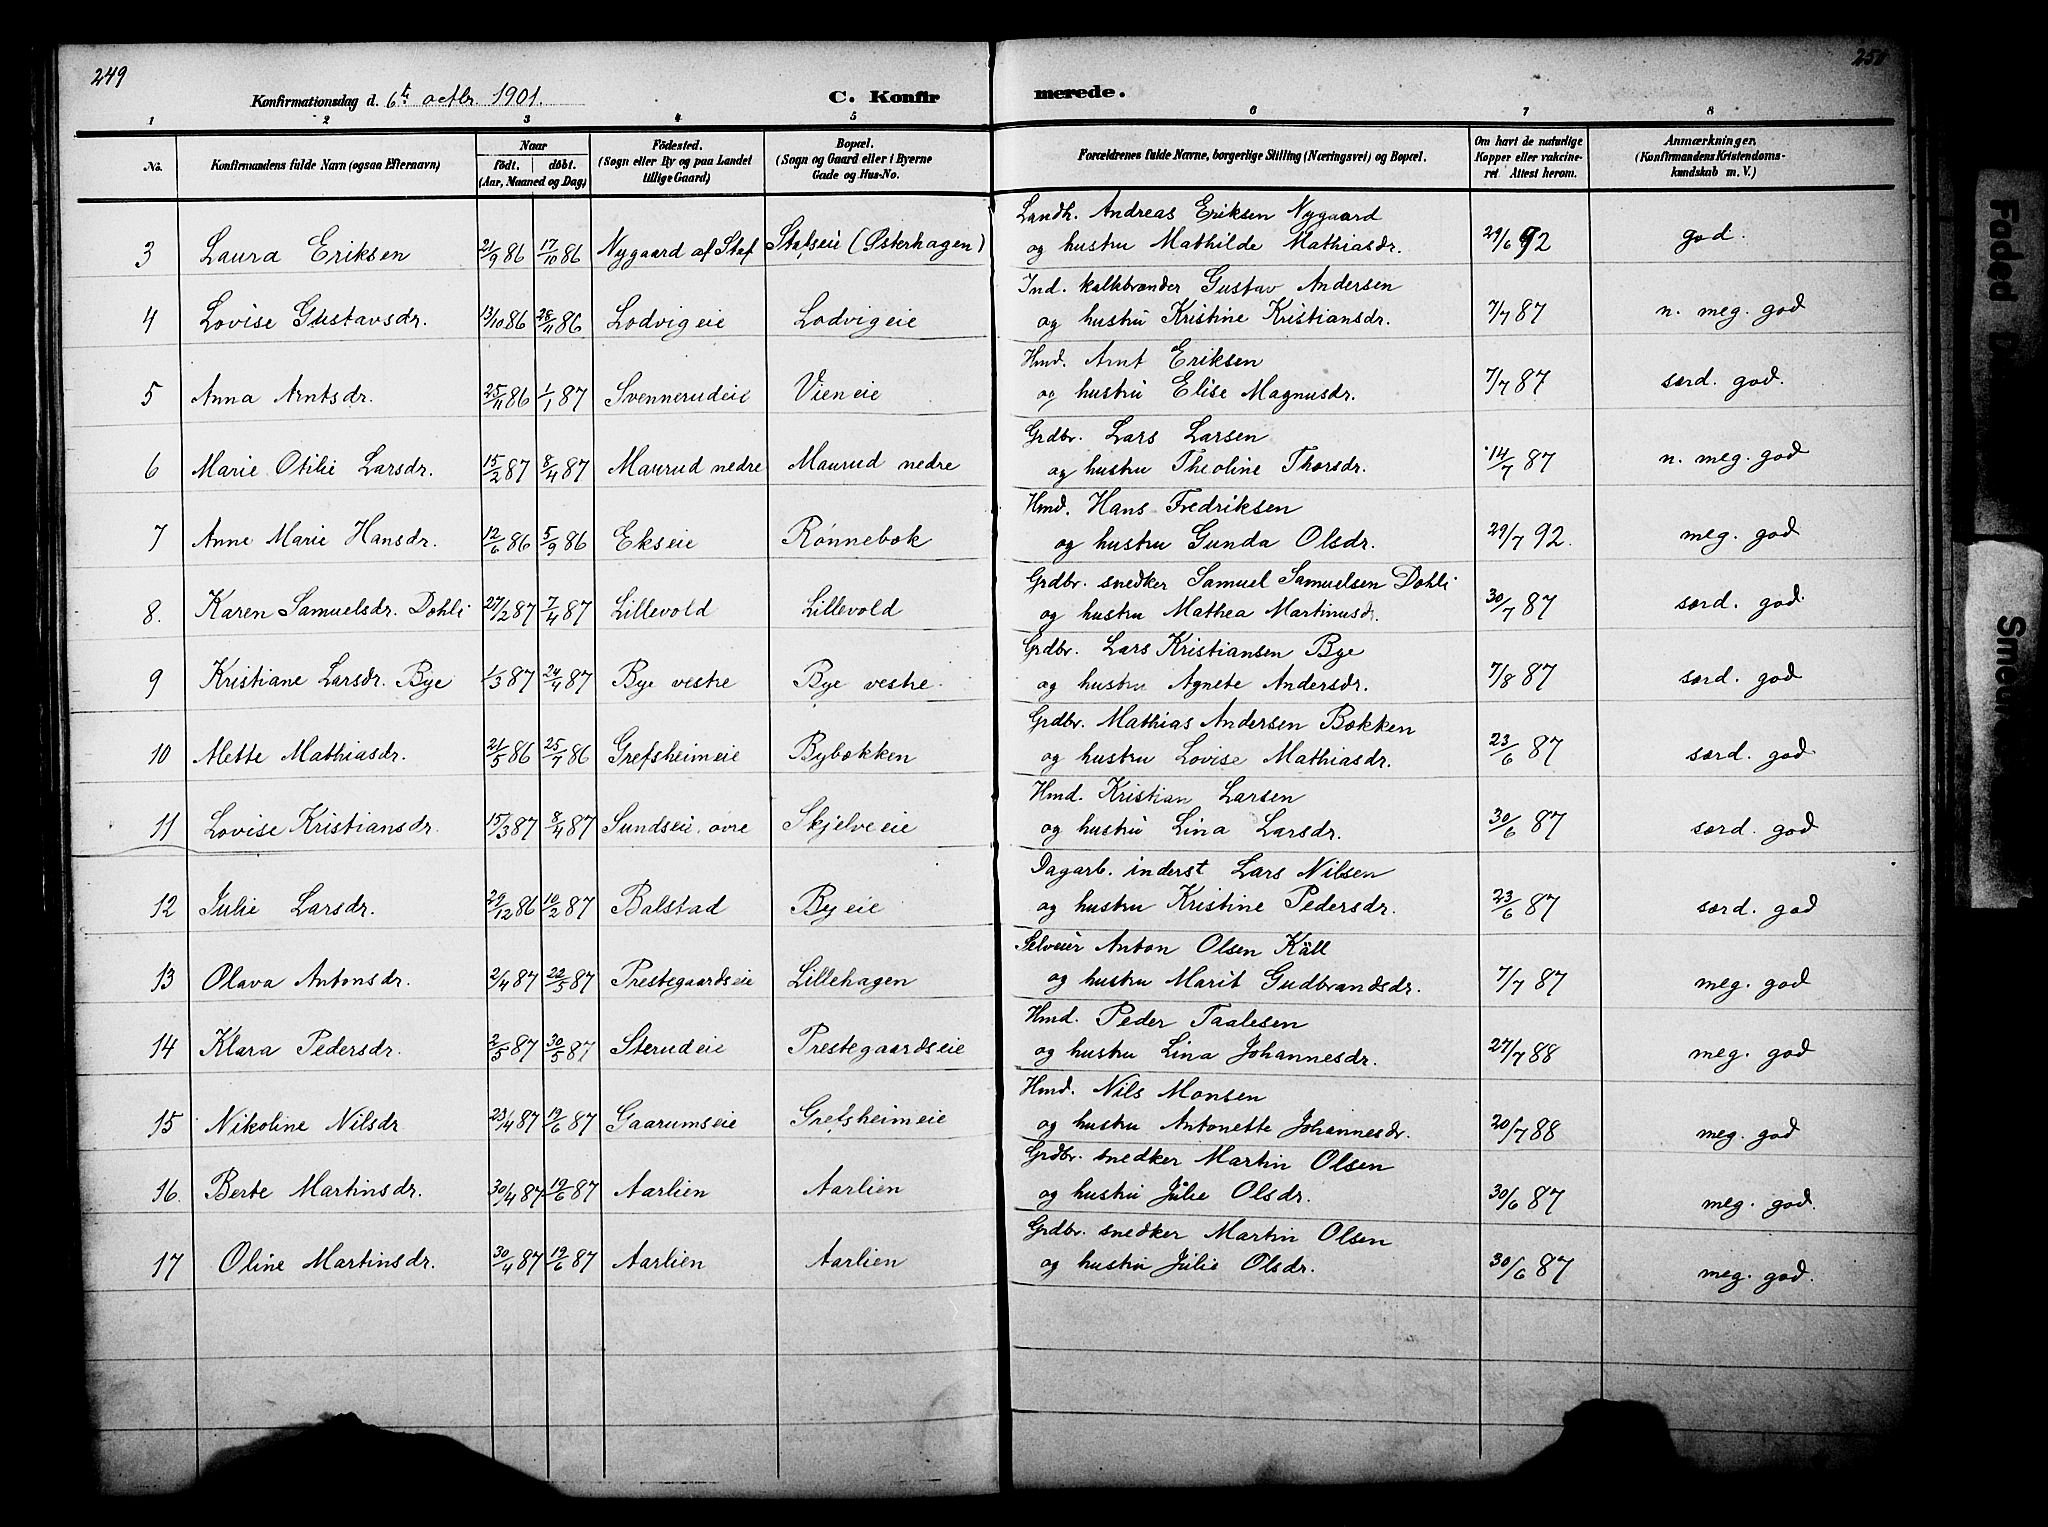 249
250
Konfirmationsdag d. 6te octbr. 1901.
C. Konfirmerede.
1 2 3 4 5 6 7 8
No. | Konfirmandens fulde Navn (ogsaa Efternavn) | Naar födt. döbt. (Aar, Maaned og Dag) | Födested. (Sogn eller By og paa Landet tillige Gaard) | Bopæl. (Sogn og Gaard eller i Byerne Gade og Hus-No. | Forældrenes fulde Navne, borgerlige Stilling (Næringsvei) og Bopæl. | Om havt de naturlige Kopper eller vakcineret Attest herom. | Anmærkninger. (Konfirmandens Kristendomskundskab m. V.)
Landh. Andreas Eriksen Nygaard
3 Laura Eriksen 21/9 86 17/10 86 Nygaard af Staf Stafseie (Østerhagen) og hustru Mathilde Mathiasdr. 29/6 92 god.
Ind. kalkbrænder Gustav Andersen
4 Lovise Gustavsdr. 13/10 86 28/11 86 Lodvigeie Lodvigeie og hustru Kristine Kristiansdr. 7/7 87 n. meg. god
Hmd. Arnt Eriksen
5 Anna Arntsdr. 25/11 86 1/1 87 Svennerudeie Vieneie og hustru Elise Magnusdr. 7/7 87 særd. god.
Grdbr. Lars Larsen
6 Marie Otilie Larsdr. 15/2 87 8/4 87 Maurud nedre Maurud nedre og hustru Theoline Thorsdr. 14/7 87 n. meg. god
Hmd. Hans Fredriksen
7 Anne Marie Hansdr. 12/6 86 5/9 86 Ekseie Rønnebæk og hustru Gunda Olsdr. 29/7 92. meg. god
Grdbr. snedker Samuel Samuelsen Dohli
8. Karen Samuelsdr. Dohli 27/2 87 7/4 87 Lillevold Lillevold og hustru Mathea Martinusdr. 30/7 87 særd. god.
Grdbr. Lars Kristiansen Bye
9 Kristiane Larsdr. Bye 1/3 87 24/4 87 Bye vestre Bye vestre. og hustru Agnete Andersdr. 7/8 87 særd. god
Grdbr. Mathias Andersen Bækken
10 Mette Mathiasdr. 21/5 86 25/7 86 Grefsheimeie Bybækken og hustru Lovise Mathiasdr. 23/6 87 særd. god
Hmd. Kristian Larsen
11 Lovise Kristiansdr. 15/3 87 8/4 87 Sundseie, øvre Skjelveeie og hustru Lina Larsdr. 30/6 87 særd. god
Dagarb. inderst Lars Nilsen
12 Julie Larsdr. 29/12 86 10/2 87 Balstad Byeie og hustru Kristine Pedersdr. 23/6 87 særd. god
Selveier Anton Olsen Käll
13 Olava Antonsdr. 2/4 87 22/5 87 Prestegaardseie Lillehagen og hustru Marit Gudbrandsdr. 7/7 87 meg. god
Hmd. Peder Taalesen
14 Klara Pedersdr. 2/5 87 30/5 87 Sterudeie Prestegaardseie og hustru Lina Johannesdr. 27/7 88 meg. god
Hmd. Nils Monsen
15 Nikoline Nilsdr 23/4 87 19/6 87 Gaarumseie Grefsheimeie og hustru Antonette Johannesdr. 20/7 88 meg. god
Grdbr. snedker Martin Olsen
16. Berte Martinsdr. 30/4 87 19/6 87 Aarlien Aarlien og hustru Julie Olsdr. 30/6 87 meg. god.
Grdbr. snedker Martin Olsen
17 Oline Martinsdr. 30/4 87 19/6 87 Aarlien Aarlien og hustru Julie Olsdr. 30/6 87 meg. god.
Faded